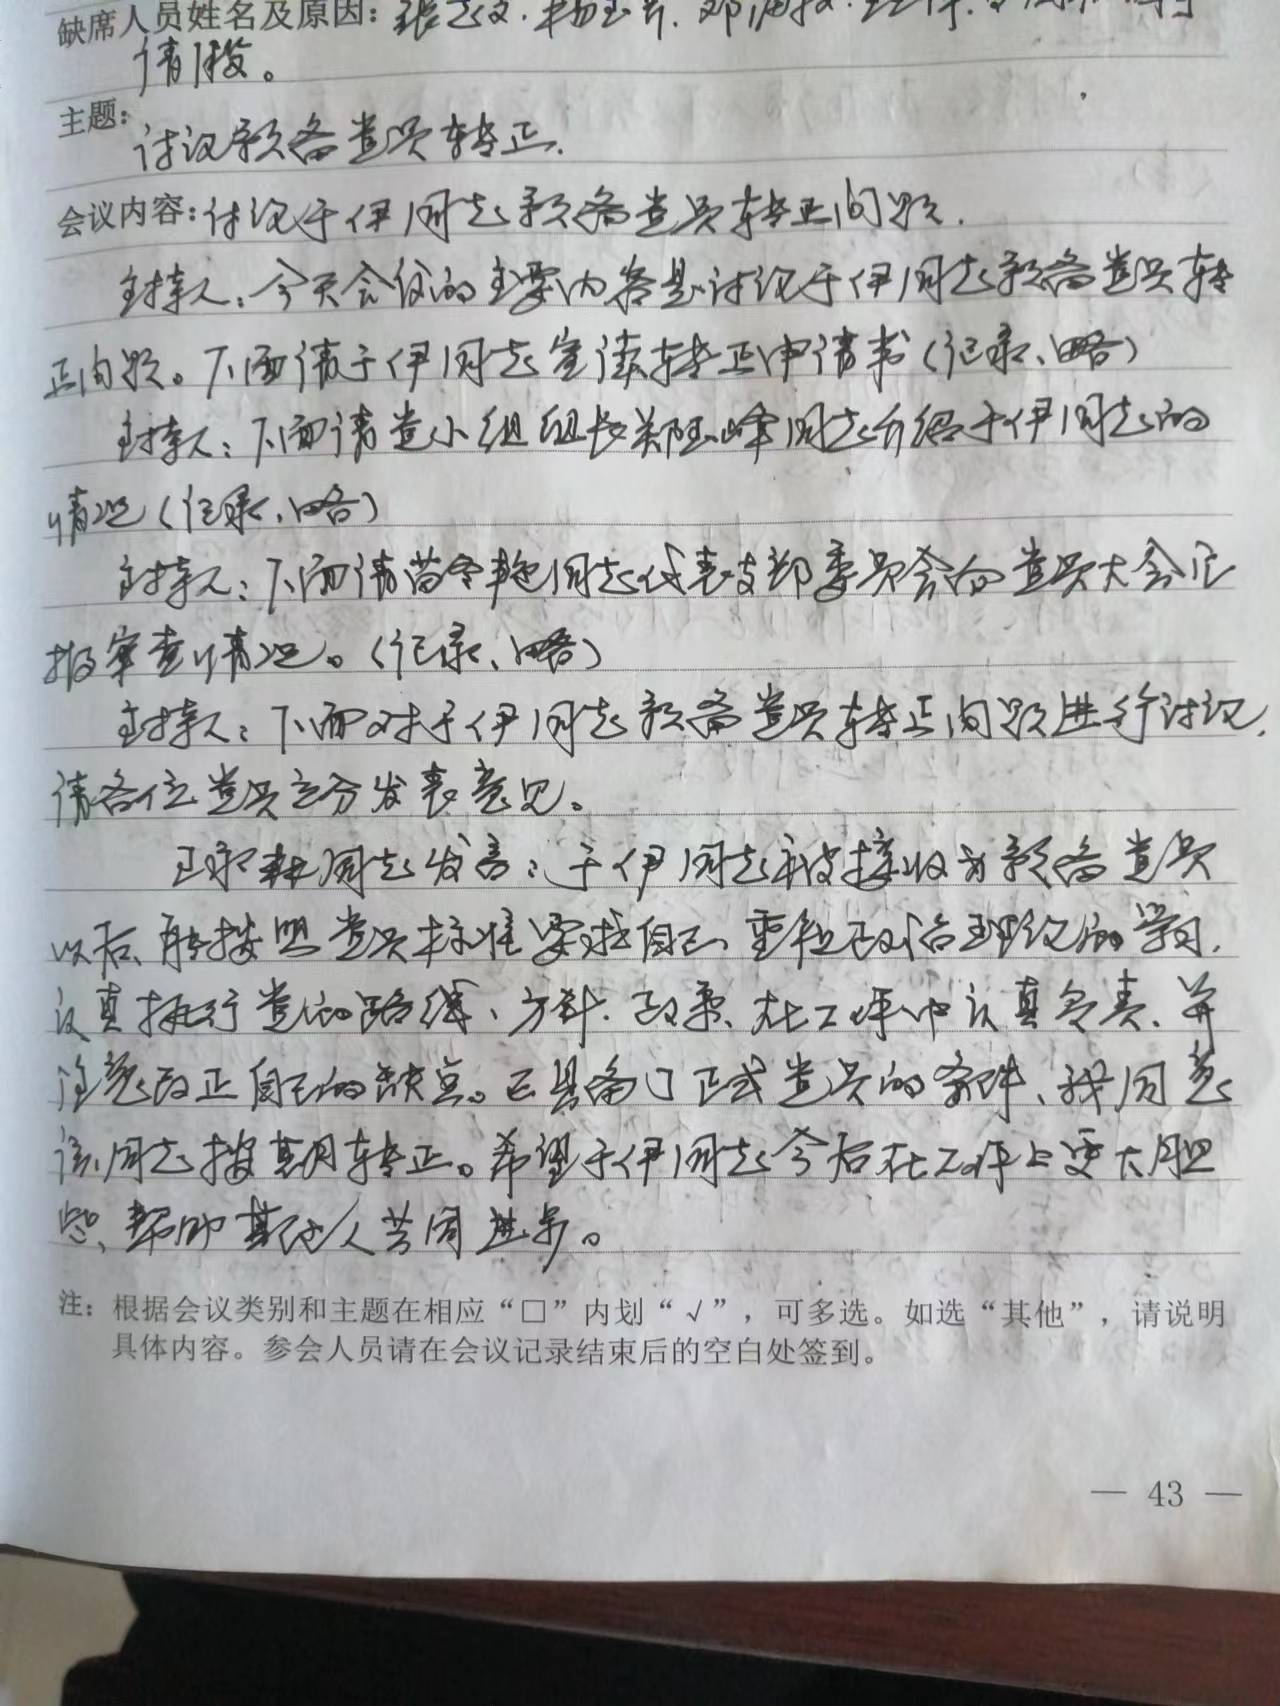 缺席人员姓名及原因:
请假。
主题:
讨论预备党员转正.
会议内容:讨论于伊同志预备党员转正问题.
主持人:今天会议的主要内容是讨论于伊同志预备党员转
正问题。下面请于伊同志宣读转正申请书(记录、略)
主持人:下面请党小组组长郑玉峰同志介绍于伊同志的
情况(记录、略)
主持人:下面请苗令艳同志代表支部委员会向党员大会汇
报审查情况。(记录、略)
主持人:下面对于伊同志预备党员转正问题进行讨论,
请各位党员充分发表意见。
同志发言:于伊同志被接收为预备党员
以后、能按照党员标准要求自己、重视政治理论的学习,
认真执行党的路线、方针、政策、在工作中认真负责、并
注意改正自己的缺点。已具备了正式党员的条件、我同意
该同志按期转正。希望于伊同志今后在工作上更大胆
些、帮助其他人共同进步。
注:根据会议类别和主题在相应“□”内划“√”,可多选。如选“其他”,请说明
具体内容。参会人员请在会议记录结束后的空白处签到。
— 43 —